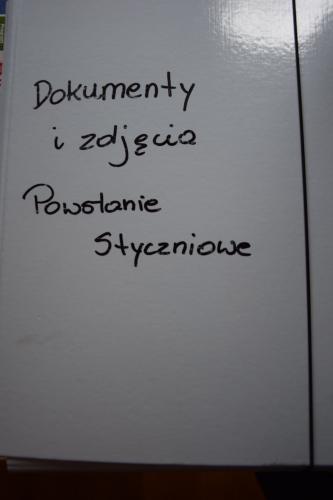 Dokumenty
i zdjęcia
Powstanie
Styczniowe